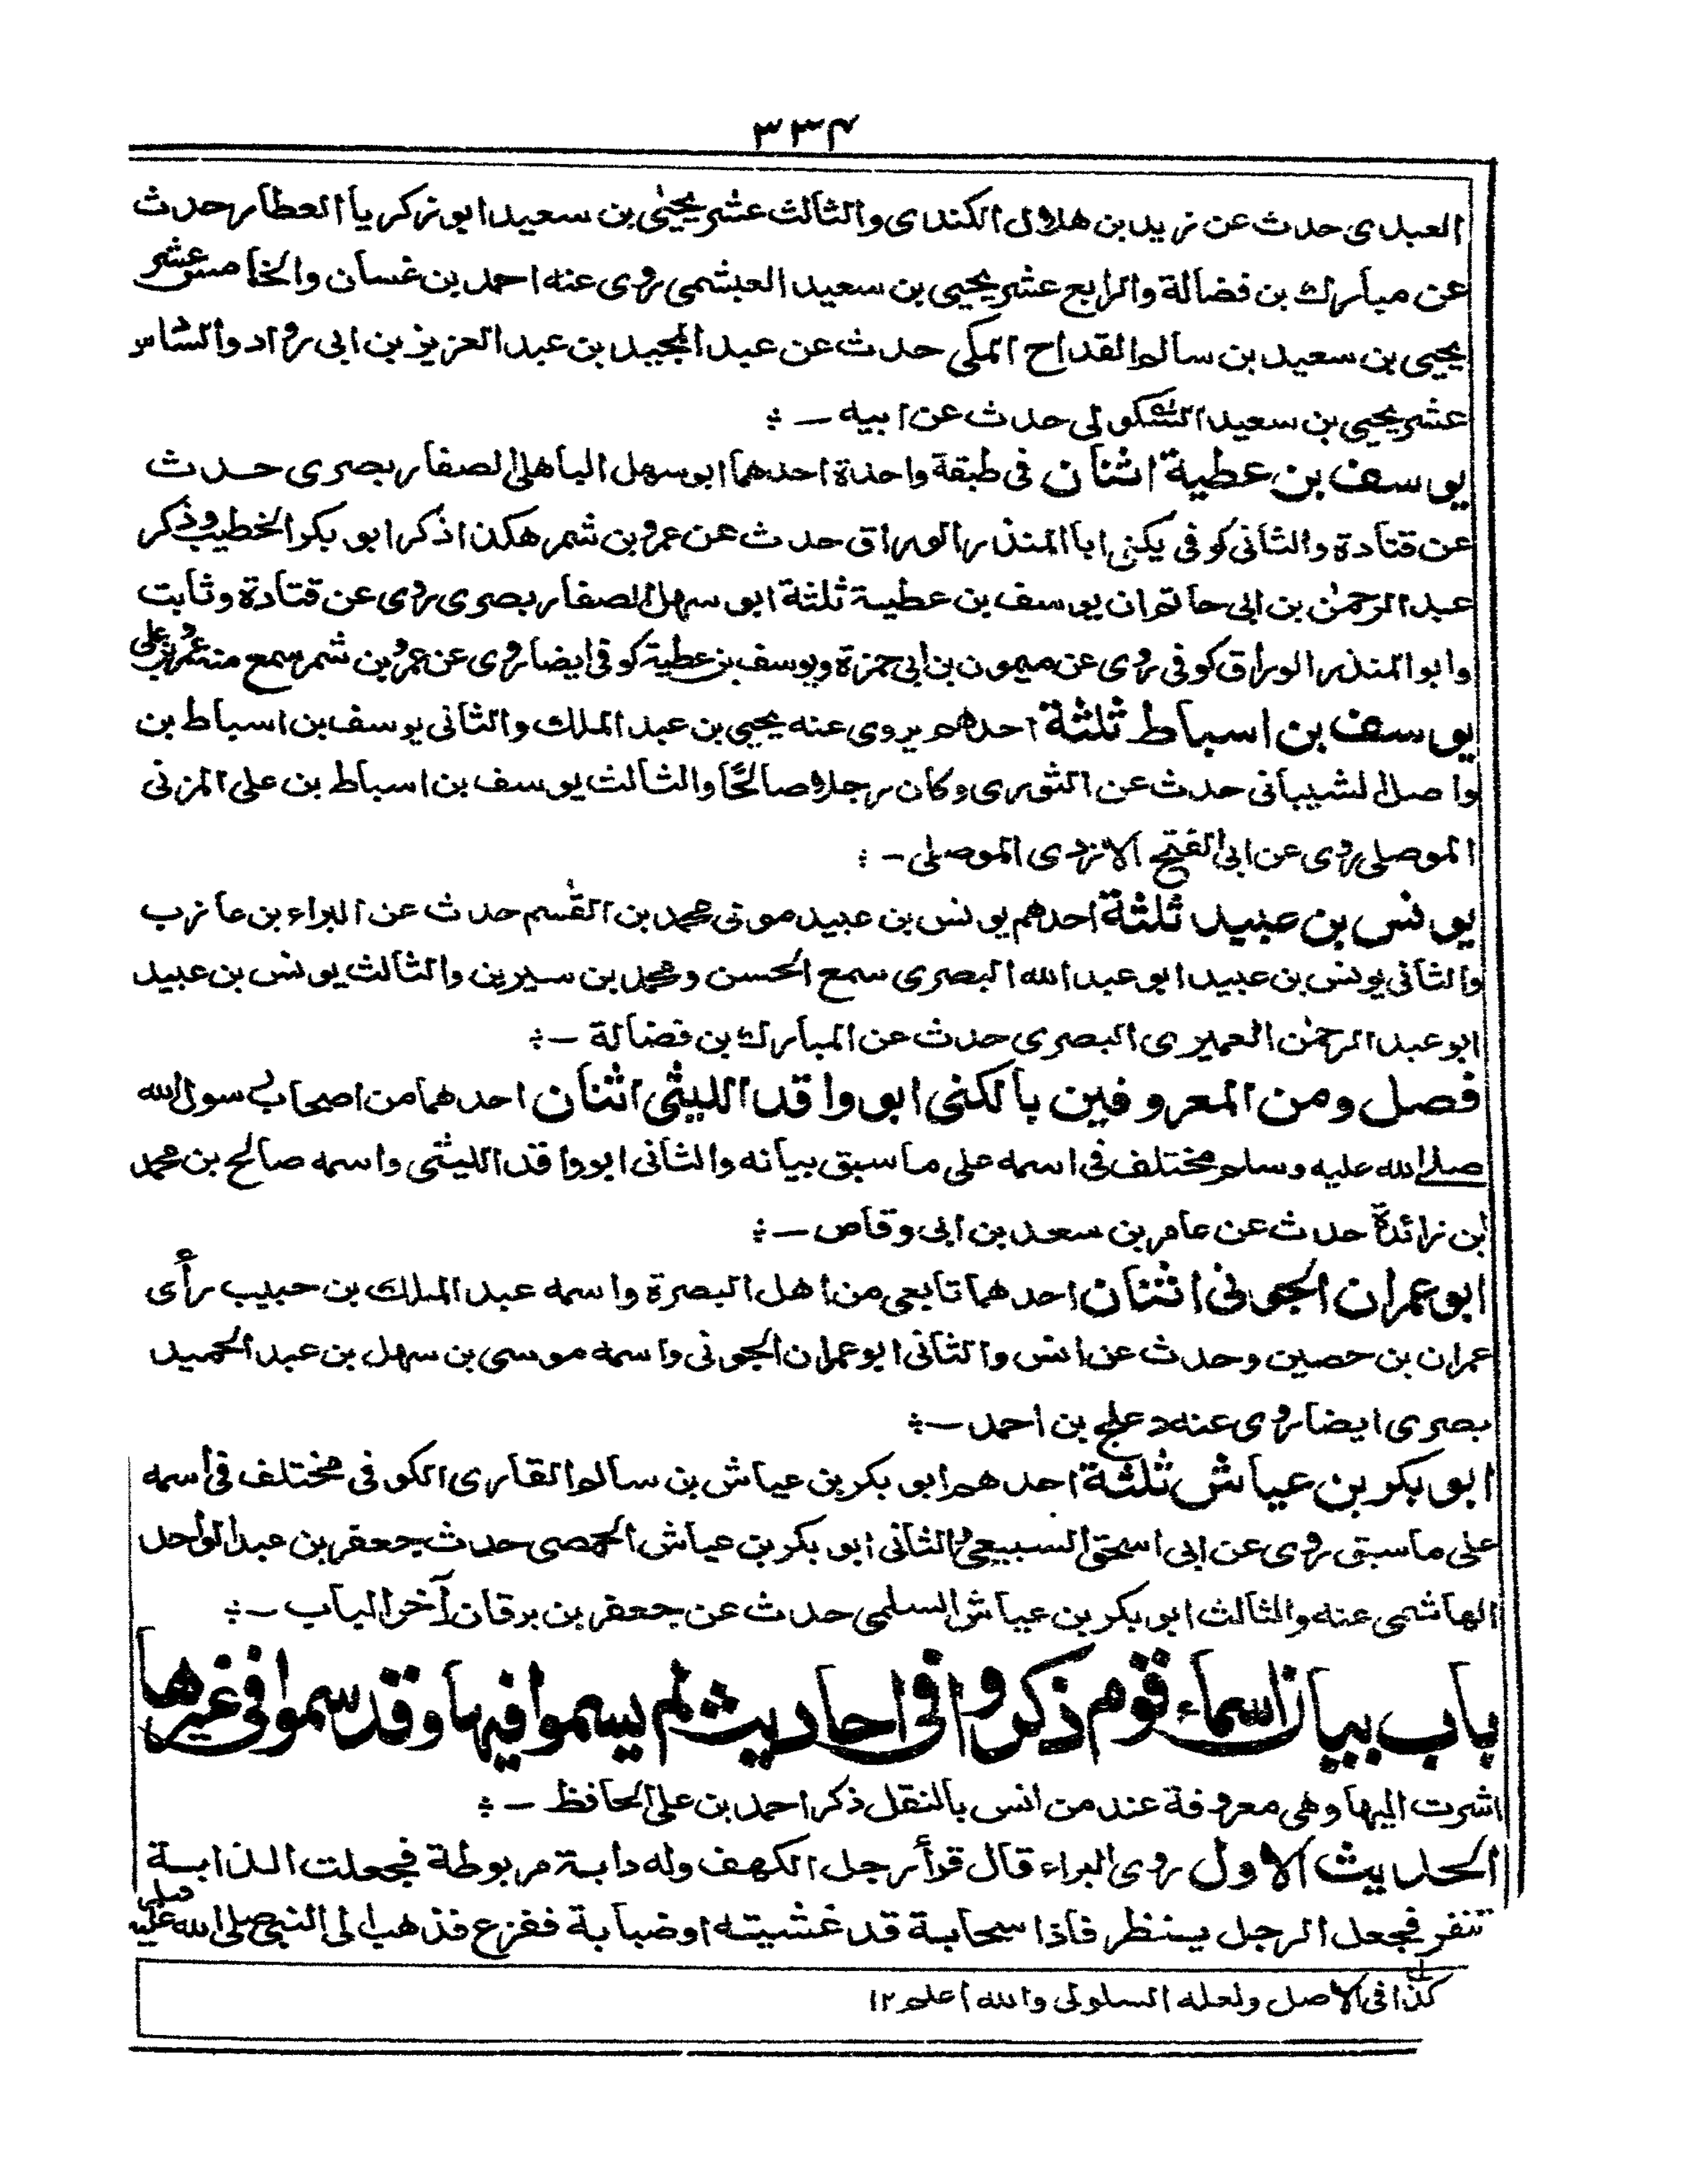 ٣٣٤
العبدى حدث عن زيد بن هلال الكندى والثالث عشر يحيىٰ بن سعيد ابو زكريا العطار حدث
عن مبارك بن فضالة والرابع عشر يحيى بن سعيد العبشمى روى عنه احمد بن غسان والخامس عشر
يحيى بن سعيد بن سالم القداح المكى حدث عن عبد المجيد بن عبد العزيز بن ابى رواد والسادس
عشر يحيى بن سعيد السكولى حدث عن ابيه ــ ؞
يوسف بن عطية اثنان فى طبقة واحدة احدهما ابو سهل الباهلى الصفار بصرى حدث
عن قتادة والثانى كوفى يكنى ابا المنذر الوراق حدث عن عمرو بن شمر هكذا ذكر ابو بكر الخطيب وذكر
عبد الرحمٰن بن ابى حاتم ان يوسف بن عطية ثلثة ابو سهل الصفار بصرى روى عن قتادة وثابت
وابو المنذر الوراق كوفى روى عن ميمون بن ابى حمزة ويوسف بن عطية كوفى ايضا روى عن عمرو بن شمر سمع منه عمرو بن على
يوسف بن اسباط ثلثة احدهم يروى عنه يحيى بن عبد الملك والثانى يوسف بن اسباط بن
واصل الشيبانى حدث عن الثورى وكان رجلا صالحًا والثالث يوسف بن اسباط بن على المزنى
الموصلى روى عن ابى الفتح الازدى الموصلى ـ ؞
يونس بن عبيد ثلثة احدهم يونس بن عبيد مونى محمد بن القٰسم حدث عن البراء بن عازب
والثانى يونس بن عبيد ابو عبد الله البصرى سمع الحسن ومحمد بن سيرين والثالث يونس بن عبيد
ابو عبد الرحمٰن العميرى البصرى حدث عن المبارك بن فضالة ــ ؞
فصل ومن المعروفين بالكنى ابو واقد الليثى اثنان احدهما من اصحاب رسول الله
صلى الله عليه وسلم مختلف فى اسمه على ما سبق بيانه والثانى ابو واقد الليثى واسمه صالح بن محمد
ابن زائدة حدث عن عامر بن سعد بن ابى وقاص ــ ؞
ابو عمران الجونى اثنان احدهما تابعى من اهل البصرة واسمه عبد الملك بن حبيب رأى
عمران بن حصين وحدث عن انس والثانى ابو عمران الجونى واسمه موسى بن سهل بن عبد الحميد
بصرى ايضا روى عنه دعلج بن احمد ــ ؞
ابو بكر بن عياش ثلثة احدهم ابو بكر بن عياش بن سالم القارى الكوفى مختلف فى اسمه
على ما سبق روى عن ابى اسحٰق السبيعى والثانى ابو بكر بن عياش الحمصى حدث جعفر بن عبد الواحد
الهاشمى عنه والثالث ابو بكر بن عياش السلمى حدث عن جعفر بن برقان آخر الباب ــ ؞
باب بيان اسماء قوم ذكروا فى احاديث لم يسموا فيها وقد سموا فى غيرها
اشرت اليها وهى معروفة عند من انس بالنقل ذكر احمد بن على الحافظ ــ ؞
الحديث الاول روى البراء قال قرأ رجل الكهف وله دابة مربوطة فجعلت الدابة
تنفر فجعل الرجل ينظر فاذا سحابة قد غشيته او ضبابة ففزع فذهب الى النبى صلى الله عليه
كذا فى الاصل ولعله السلولى والله اعلم ١٢